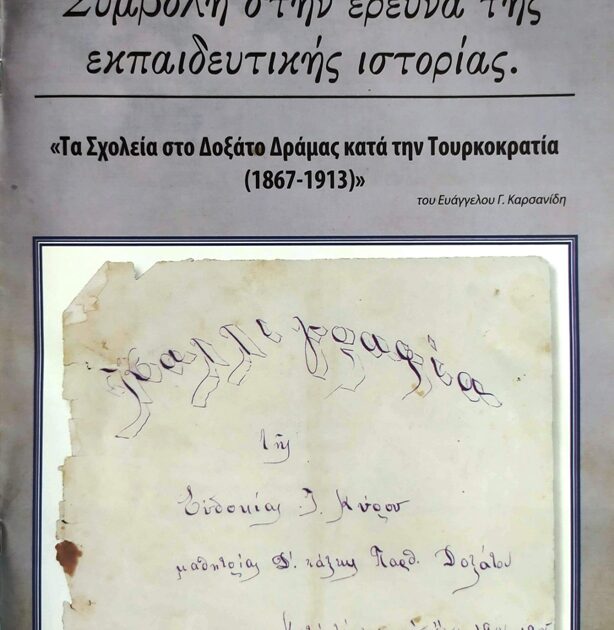 Συμβολή στην έρευνα της
εκπαιδευτικής ιστορίας.
«Τα Σχολεία στο Δοξάτο Δράμας κατά την Τουρκοκρατία
(1867-1913)»
του Ευάγγελου Γ. Καρσανίδη
Καλλιγραφία
τῆς
Εὐδοκίας Ἰ. Κύρου
μαθητρίας Δ'. τάξεως Παρθ. Δοξάτου